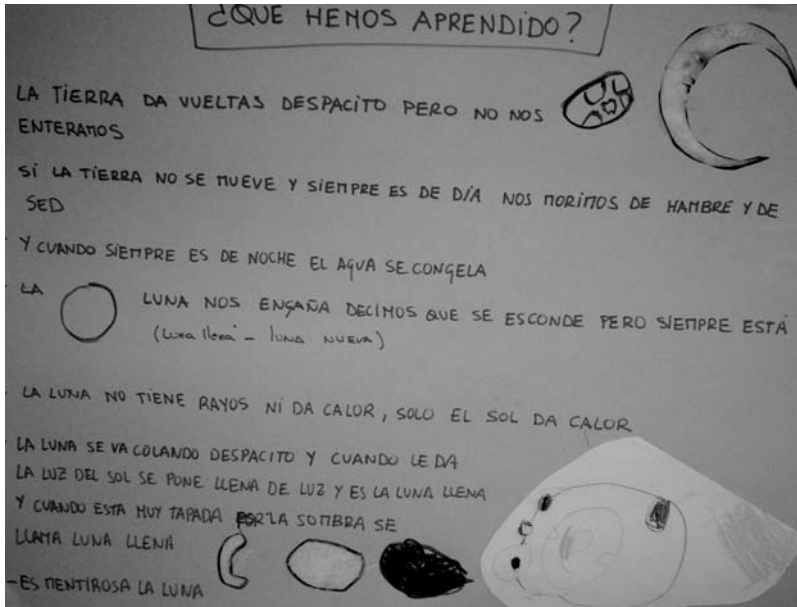 ¿QUE HEMOS APRENDIDO?
LA TIERRA DA VUELTAS DESPACITO PERO NO NOS
ENTERAMOS
SI LA TIERRA NO SE MUEVE Y SIEMPRE ES DE DÍA NOS MORIMOS DE HAMBRE Y DE
SED
Y CUANDO SIEMPRE ES DE NOCHE EL AGUA SE CONGELA
LA LUNA NOS ENGAÑA DECIMOS QUE SE ESCONDE PERO SIEMPRE ESTÁ
(luna llena - luna nueva)
LA LUNA NO TIENE RAYOS NI DA CALOR, SOLO EL SOL DA CALOR
LA LUNA SE VA COLANDO DESPACITO Y CUANDO LE DA
LA LUZ DEL SOL SE PONE LLENA DE LUZ Y ES LA LUNA LLENA
Y CUANDO ESTA MUY TAPADA POR LA SOMBRA SE
LLAMA LUNA LLENA
- ES MENTIROSA LA LUNA